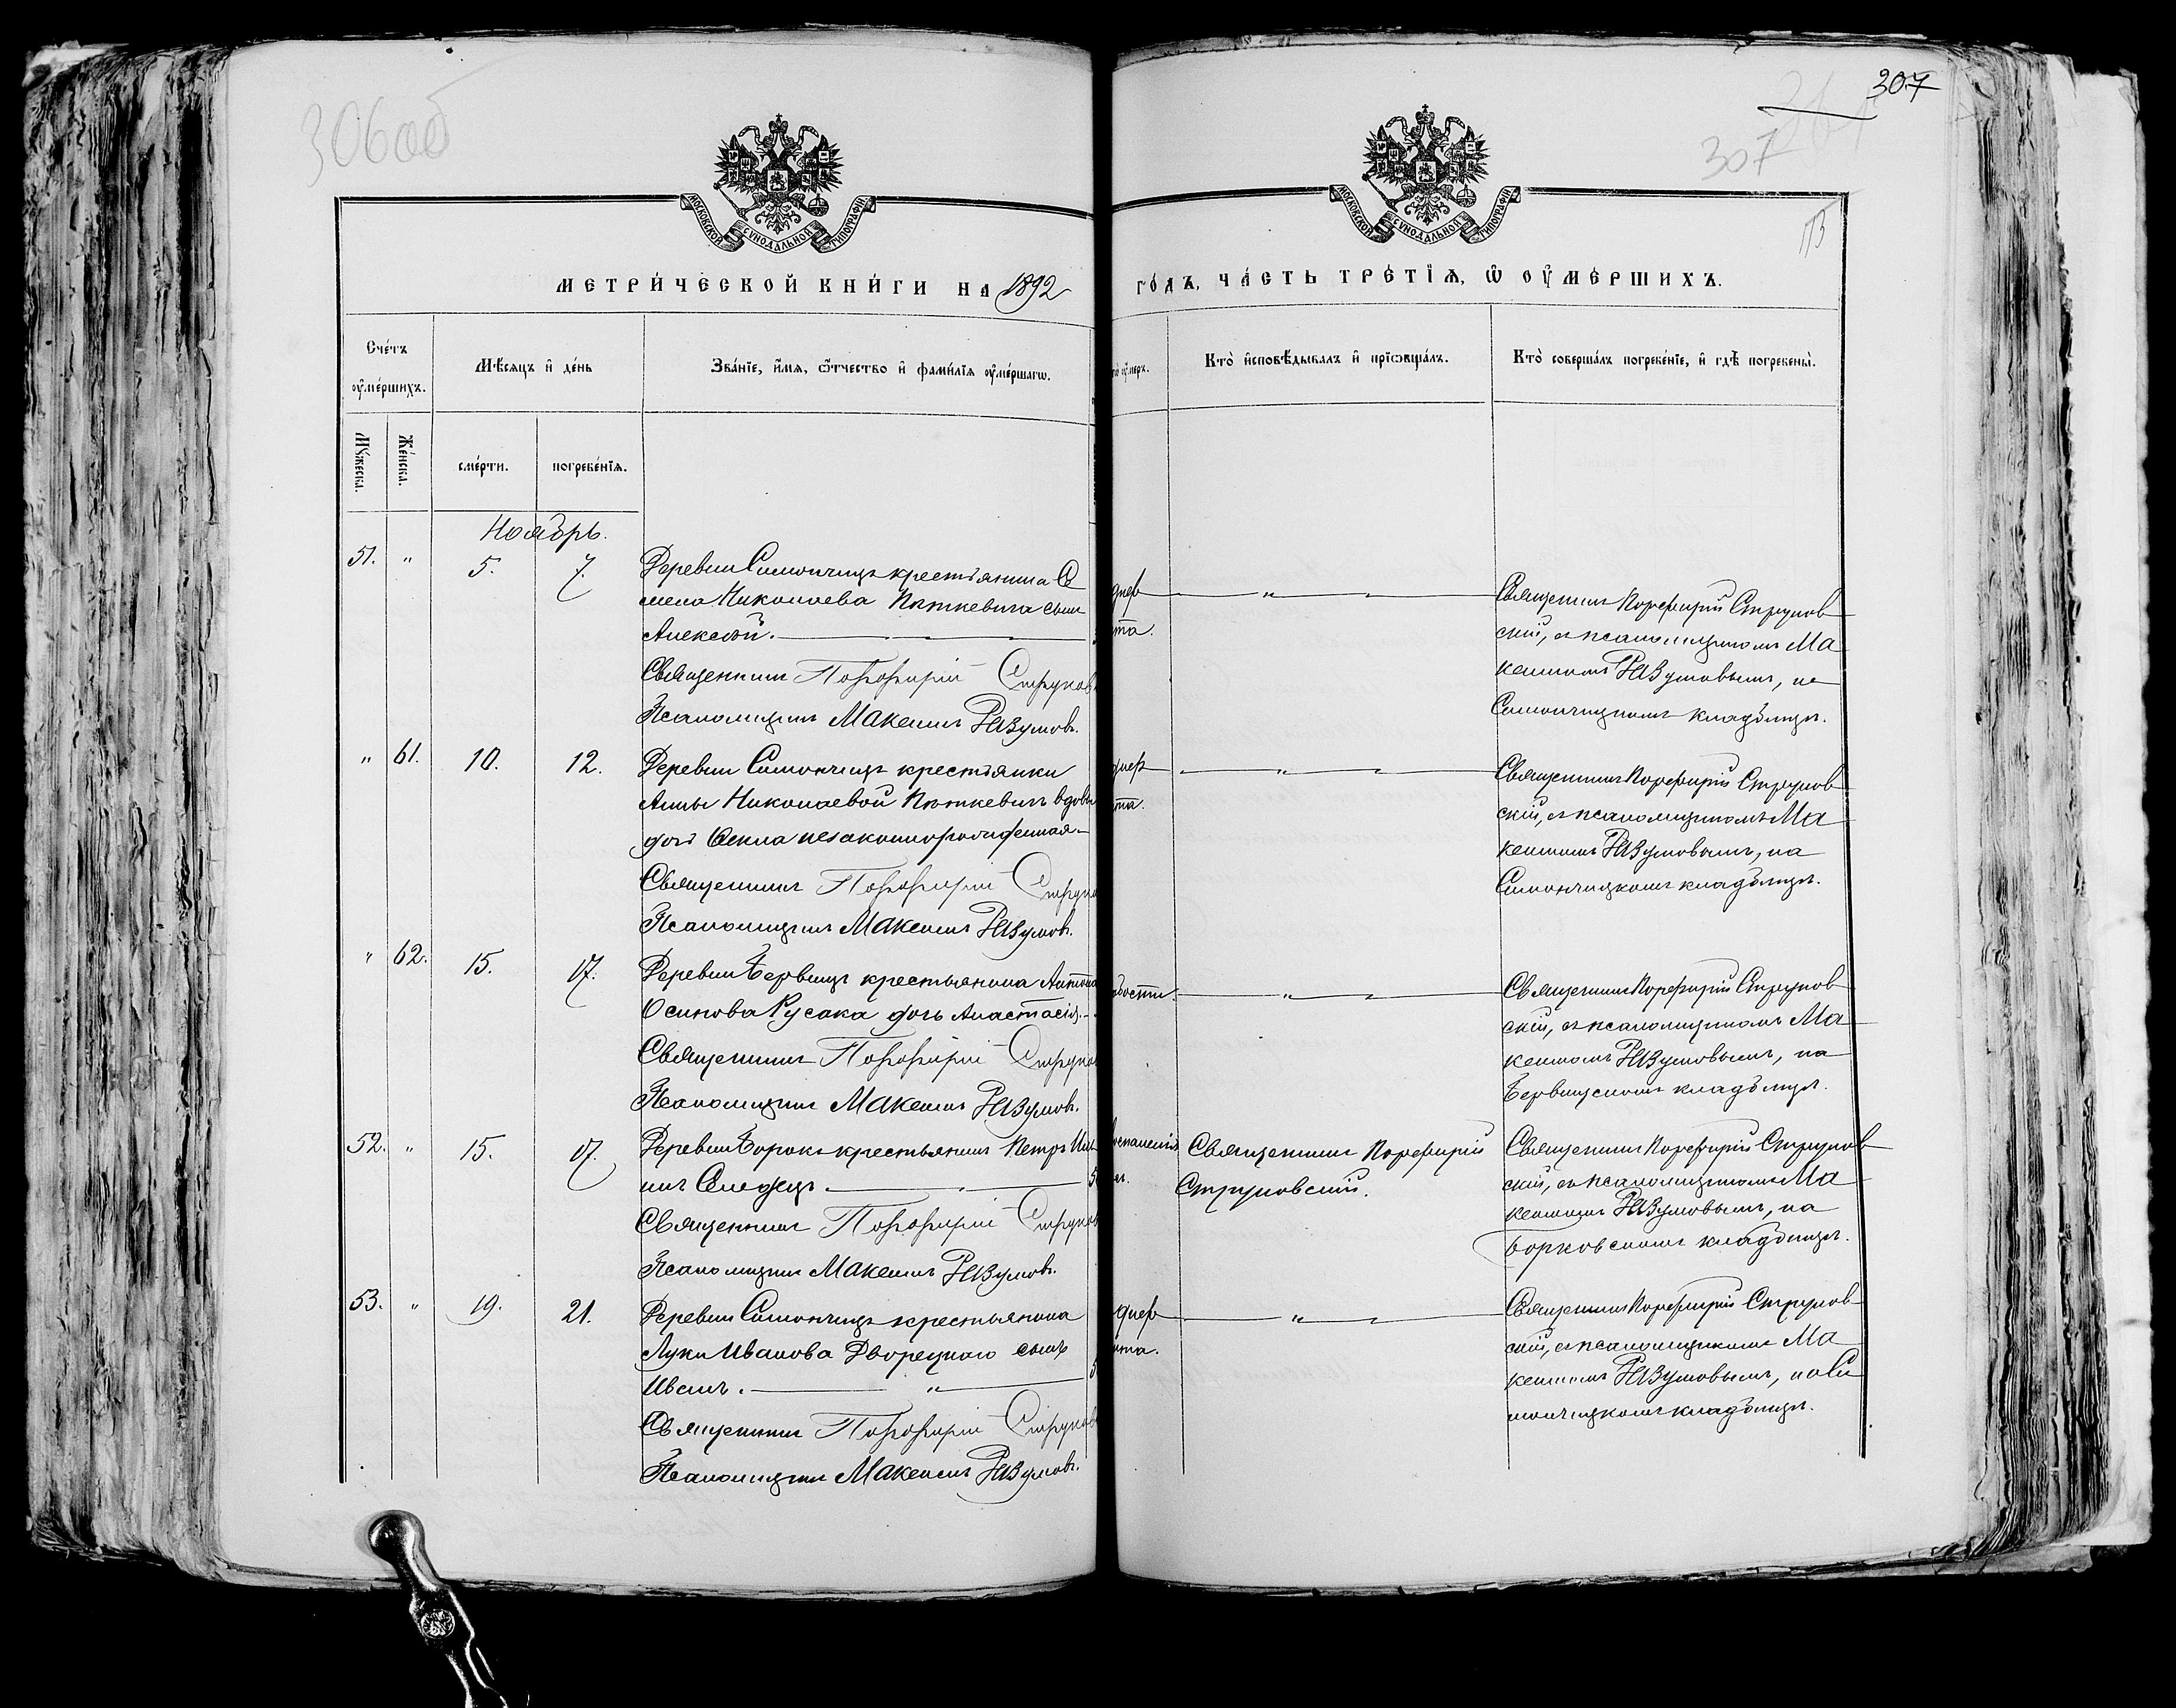 306об
307
307
МОСКОВСКОЙ СѴНОДАЛЬНОЙ ТИПОГРАФІИ
МОСКОВСКОЙ СѴНОДАЛЬНОЙ ТИПОГРАФІИ
МЕТРИ́ЧЕСКОЙ КНИ́ГИ НА 1892
ГО́ДЪ, ЧА́СТЬ ТРЕ́ТІѦ, Ѿ ОУ҆МЕ́РШИХЪ.
Сче́тъ оу҆ме́ршихъ.
Мѣ́сяцъ и҆ де́нь
Зва́нїе, и҆́мѧ, ѻ҆́тчество и҆ фами́лїѧ оу҆ме́ршагѡ.
Кто̀ и҆сповѣ́дывалъ и҆ прїѡбща́лъ.
Кто̀ соверша́лъ погребе́нїе, и҆ гдѣ̀ погребены̀.
Мꙋ́жеска.
Же́нска.
сме́рти.
погребе́нїѧ.
Ноябрь.
51. " 5. 7. Деревни Симончицъ крестьянина Се
мена Николаева Пяткевича сынъ
Алексѣй.
Священникъ Порфирій Струков
Псаломщикъ Максимъ Разумовъ.
дифте
та.
Священникъ Порфирій Струков
скій, съ псаломщикомъ Ма
ксимомъ Разумовымъ, на
Симончицкомъ кладбищѣ.
" 61. 10. 12. Деревни Симончицъ крестьянки
Анны Николаевой Пяткевичъ вдовы
дочь Фекла незаконнорожденная
Священникъ Порфирій Струко
Псаломщикъ Максимъ Разумовъ.
та.
Священникъ Порфирій Струков
скій, съ псаломщикомъ Ма
ксимомъ Разумовымъ, на
Симончицкомъ кладбищѣ.
" 62. 15. 17. Деревни Бервищъ крестьянина Антона
Осипова Русака дочь Анастасія.
Священникъ Порфирій Струков
Псаломщикъ Максимъ Разумовъ.
бости.
Священникъ Порфирій Струков
скій, съ псаломщикомъ Ма
ксимомъ Разумовымъ, на
кладбищѣ.
52. " 15. 17. Деревни Борокъ крестьянинъ Петръ Иль
инъ
Священникъ Порфирій Струков
Псаломщикъ Максимъ Разумовъ.
спаленія
Священникъ Порфирій
Струковскій.
Священникъ Порфирій Струков
скій, съ псаломщикомъ Ма
ксимомъ Разумовымъ, на
Борковскомъ кладбищѣ.
53. " 19. 21. Деревни Симончицъ крестьянина
Луки Иванова Дворецкаго сынъ
Иванъ.
Священникъ Порфирій Струков
Псаломщикъ Максимъ Разумовъ.
та.
Священникъ Порфирій Струков
скій, съ псаломщикомъ Ма
ксимомъ Разумовымъ, на Си
мончицкомъ кладбищѣ.